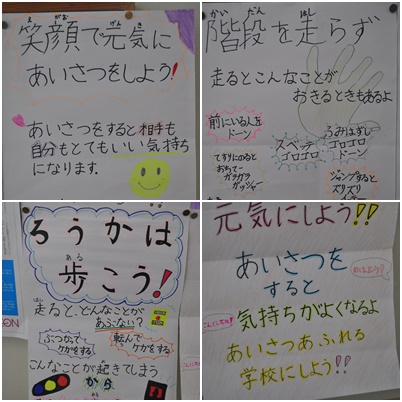 笑顔で元気に
あいさつをしよう!
あいさつをすると相手も
自分もとてもいい気持ち
になります。
階段を走らず
走るとこんなことが
おきるときもあるよ
前にいる人を
ドーン
スベッテ
ゴロゴロ
ふみはずし
ゴロゴロ
ドーン
てすりにのると
おちてー
ガラガラ
ガッシャー
ジャンプすると
ズリズリ
ろうかは
歩こう!
走ると、どんなことが
あぶない?
ぶつかって
ケガをする
転んで
ケガをする
こんなことが起きてしまう
から
元気にしよう!!
あいさつを
すると
おはよう!
気持ちがよくなるよ
こんにちは!
あいさつあふれる
学校にしよう!!